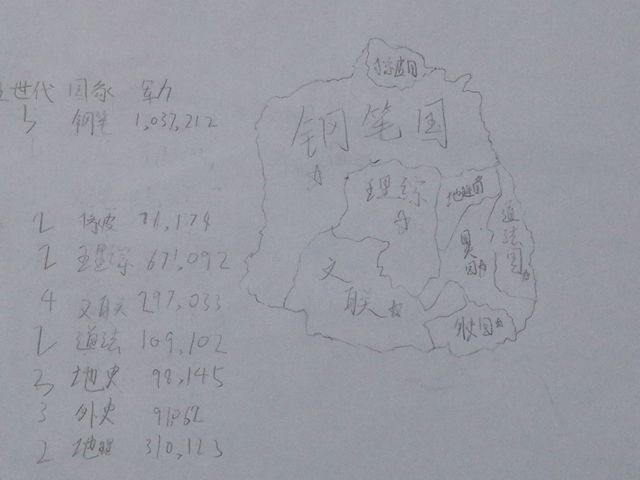 世代 国家 军力
3 钢笔 1,037,212
2 橡皮 71,174
2 理综 671,092
4 文联 297,033
2 道法 109,102
3 地史 98,145
3 外史 91062
2 地理 310,123
橡皮国
钢笔国
理综
地理国
道法国
文联
外史国